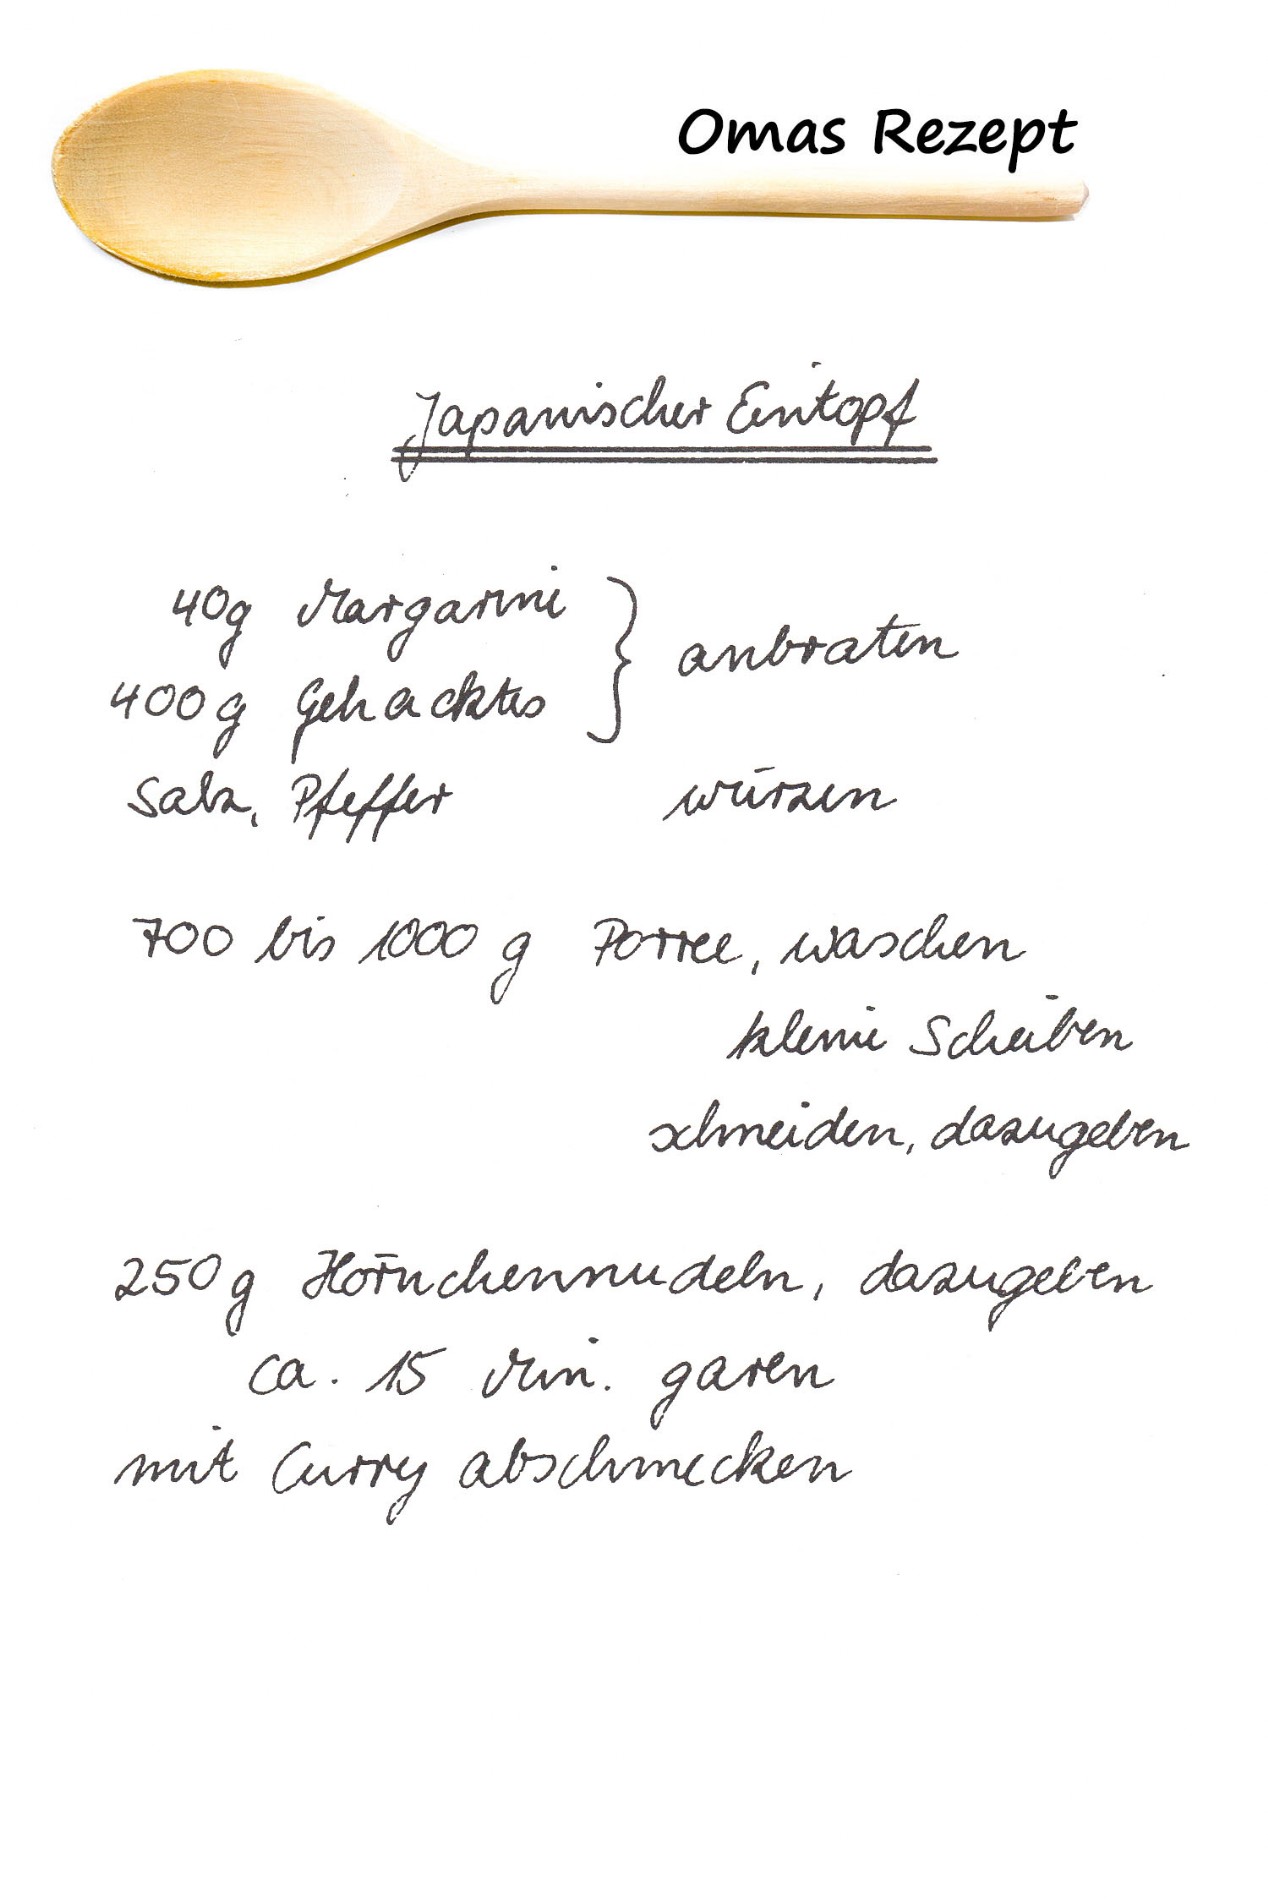 Omas Rezept
Japanischer Eintopf
40g Margarine } anbraten
400g Gehacktes
Salz, Pfeffer würzen
700 bis 1000 g Porree, waschen
kleine Scheiben
schneiden, dazugeben
250g Hörnchennudeln, dazugeben
ca. 15 Min. garen
mit Curry abschmecken